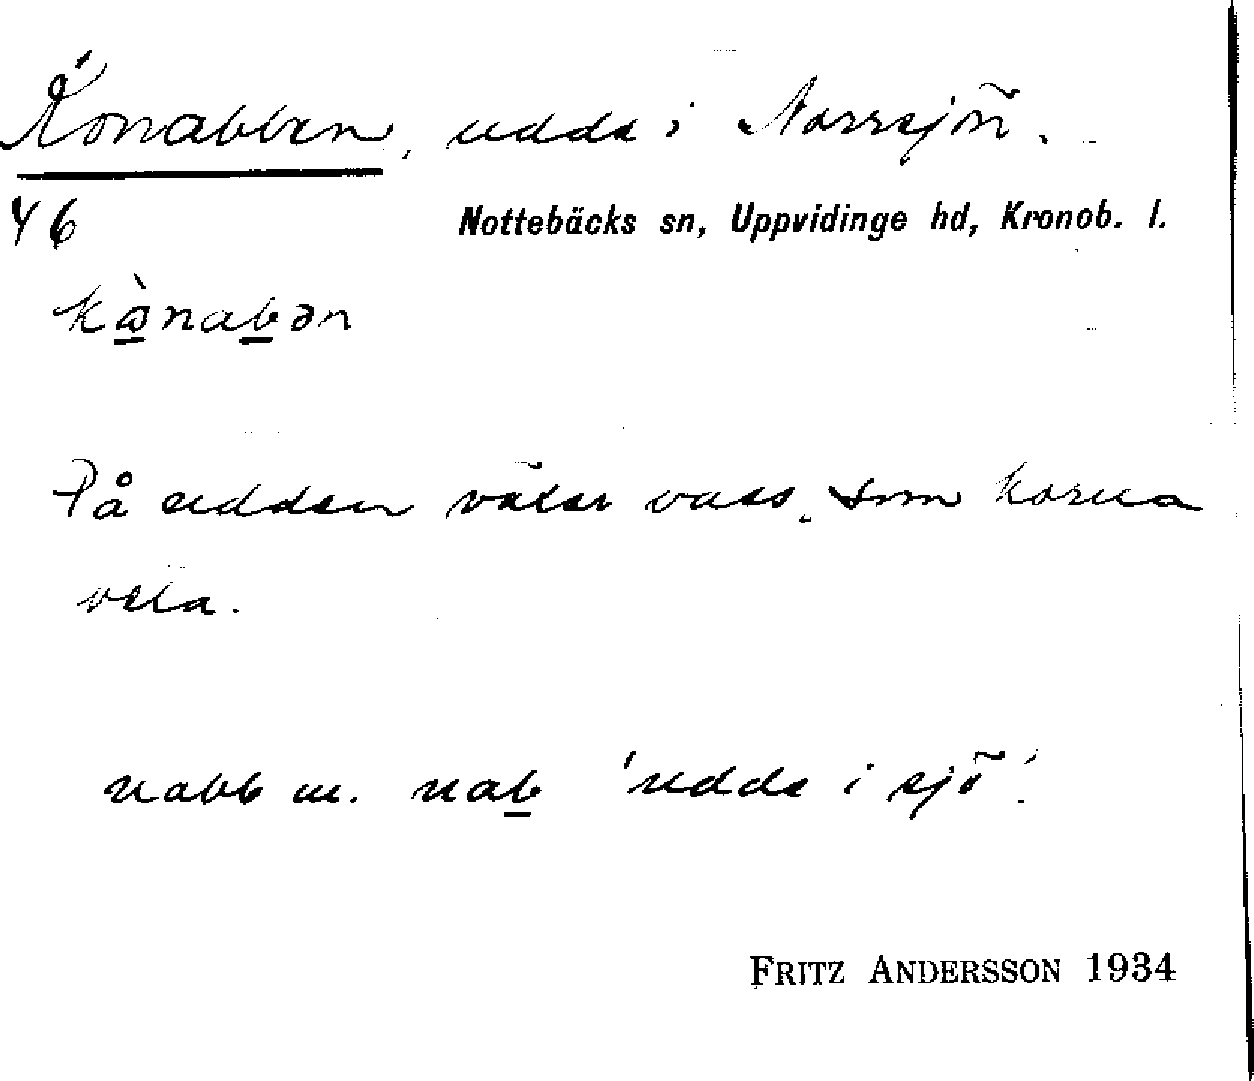 Konabben, udde i Norrsjön.
Y6 Nottebäcks sn, Uppvidinge hd, Kronob. l.
På udden växer vass, som korna
veta.
nabb m. nab 'udde i sjö'.
FRITZ ANDERSSON 1934